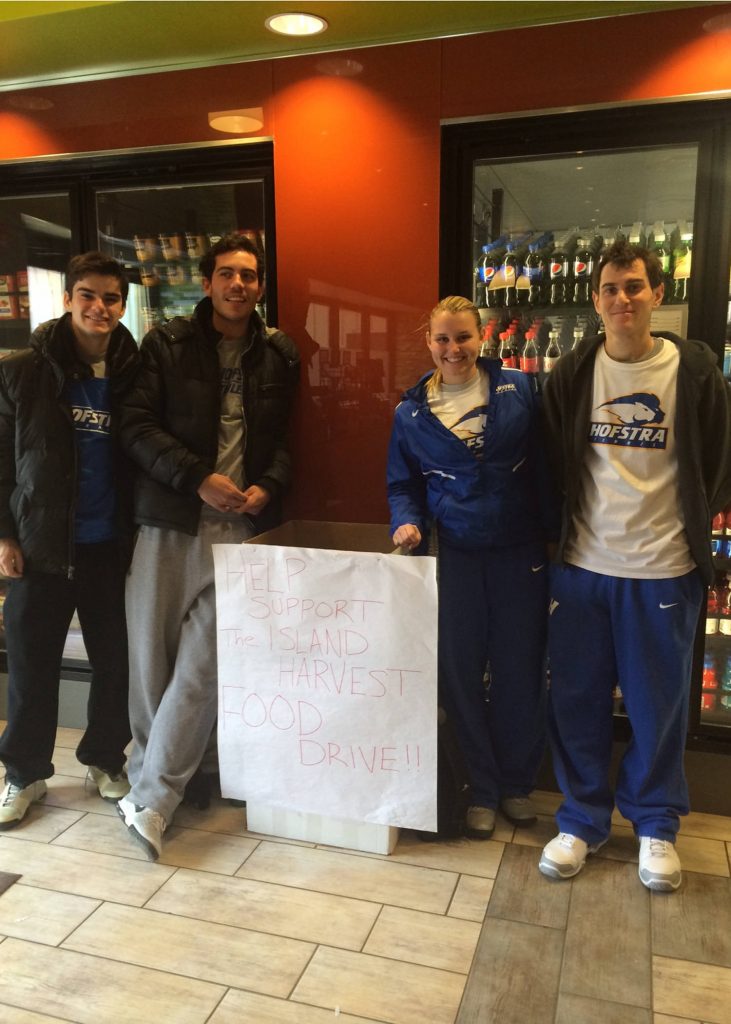 HELP
SUPPORT
The ISLAND
HARVEST
FOOD
DRIVE!!
HOFSTRA
HOFST